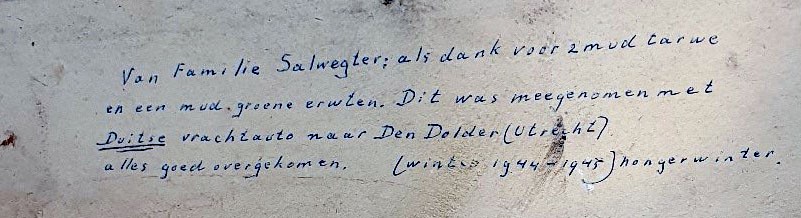 Van Familie Salwegter; als dank voor 2 mud tarwe
en een mud groene erwten. Dit was meegenomen met
Duitse vrachtauto naar Den Dolder (Utrecht).
alles goed overgekomen. (winter 1944-1945) hongerwinter.